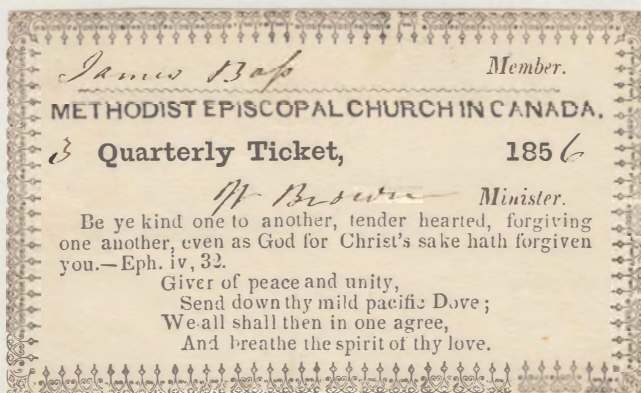 James Bass Member.
METHODIST EPISCOPAL CHURCH IN CANADA.
3 Quarterly Ticket, 1856
W Brown Minister.
Be ye kind one to another, tender hearted, forgiving
one another, even as God for Christ's sake hath forgiven
you.—Eph. iv, 32.
Giver of peace and unity,
Send down thy mild pacific Dove;
We all shall then in one agree,
And breathe the spirit of thy love.